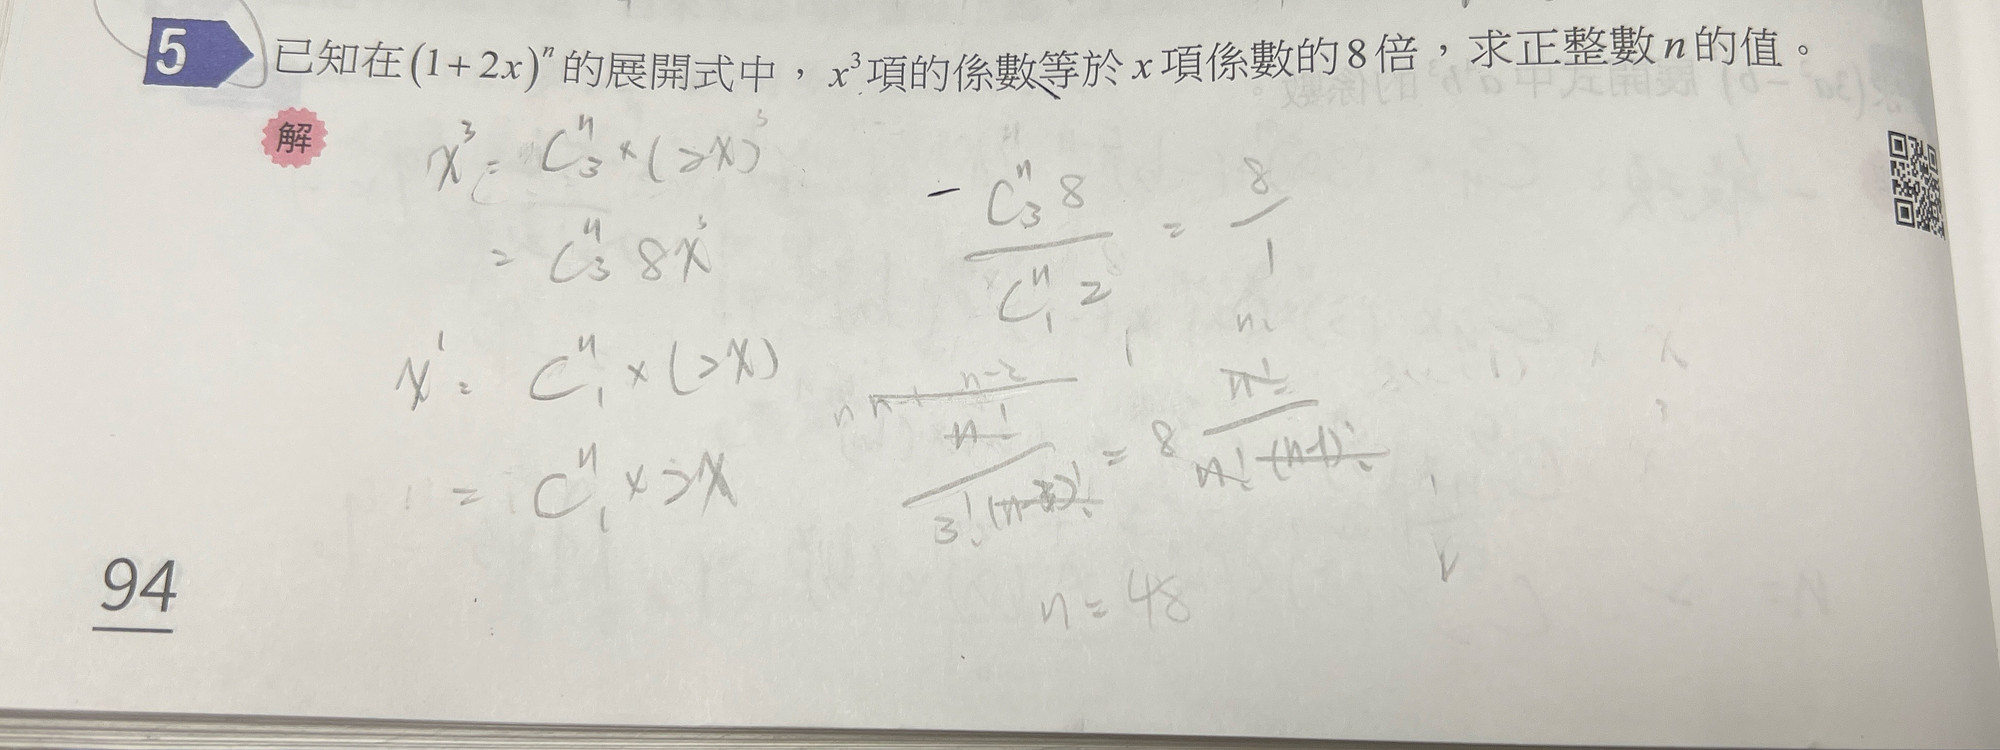 5 已知在(1+2x)ⁿ的展開式中，x³項的係數等於x項係數的8倍，求正整數n的值。
解
x³ = C₃ⁿ × (2x)³
= C₃ⁿ 8x³
x¹ = C₁ⁿ × (2x)
= C₁ⁿ × 2x
C₃ⁿ 8 / C₁ⁿ 2 = 8 / 1
n-2
n! / 3!(n-3)! = 8 n! / (n-1)!
n = 48
94